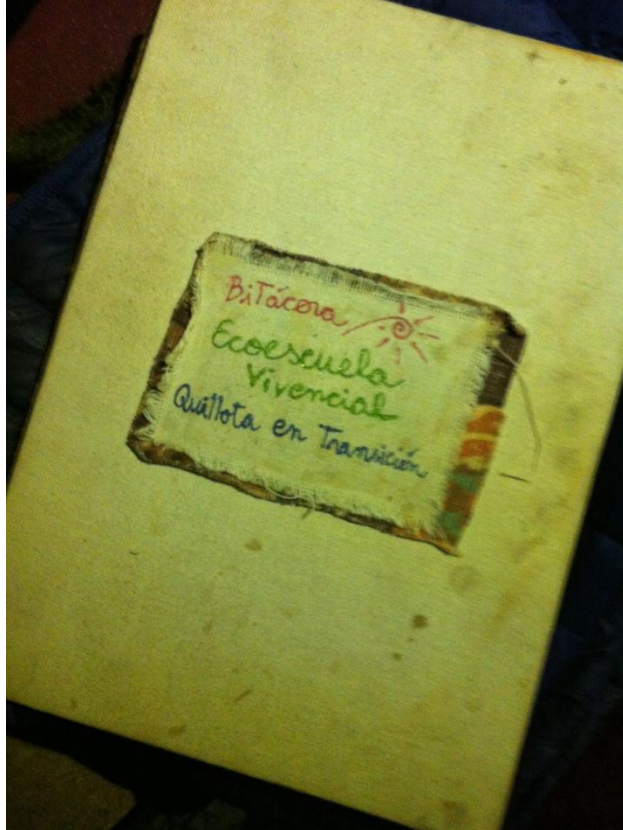 BiTácora
Ecoescuela
Vivencial
Quillota en Transición